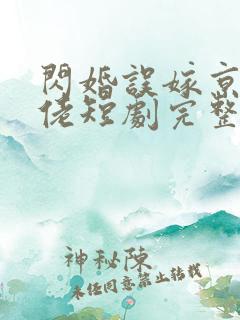 閃婚誤嫁京
佬短劇完整
神秘陳
未經同意禁止轉載